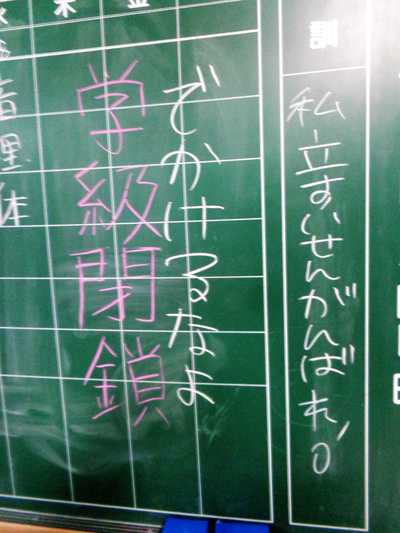 訓
私立すいせんがんばれ!。
でかけるなよ
学級閉鎖
金
木
音
理
体